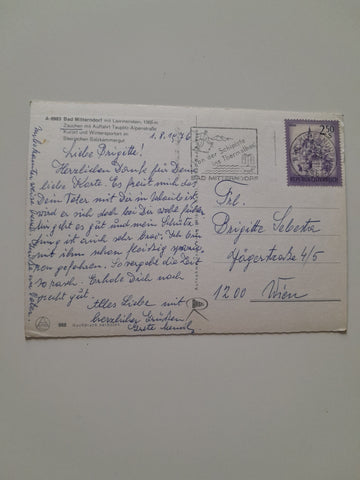 A-8983 Bad Mitterndorf mit Lawinenstein, 1965 m
Zauchen mit Auffahrt Tauplitz-Alpenstraße
Kurort und Wintersportort im
Steirischen Salzkammergut
1.8.1976
Liebe Brigitte!
Herzlichen Dank für Deine
liebe Karte. Es freut mich, daß
Dein Vater mit Dir in Urlaub ist,
wird er sich doch bei Dir wohl fühlen.
Mir geht es gut und mein
ist auch sehr brav. Ich bin
mit ihm schon fleißig
gefahren. So vergeht die Zeit
so rasch. Erhole Dich noch
recht gut.
Alles Liebe mit
herzlichen Grüßen
Grete
Von der Schipiste
ins Thermalbad
BAD MITTERNDORF
2.50
REPUBLIK ÖSTERREICH
Frl.
Brigitte Sebesta
Jägerstraße 4/5
1200 Wien
988 Nachdruck verboten